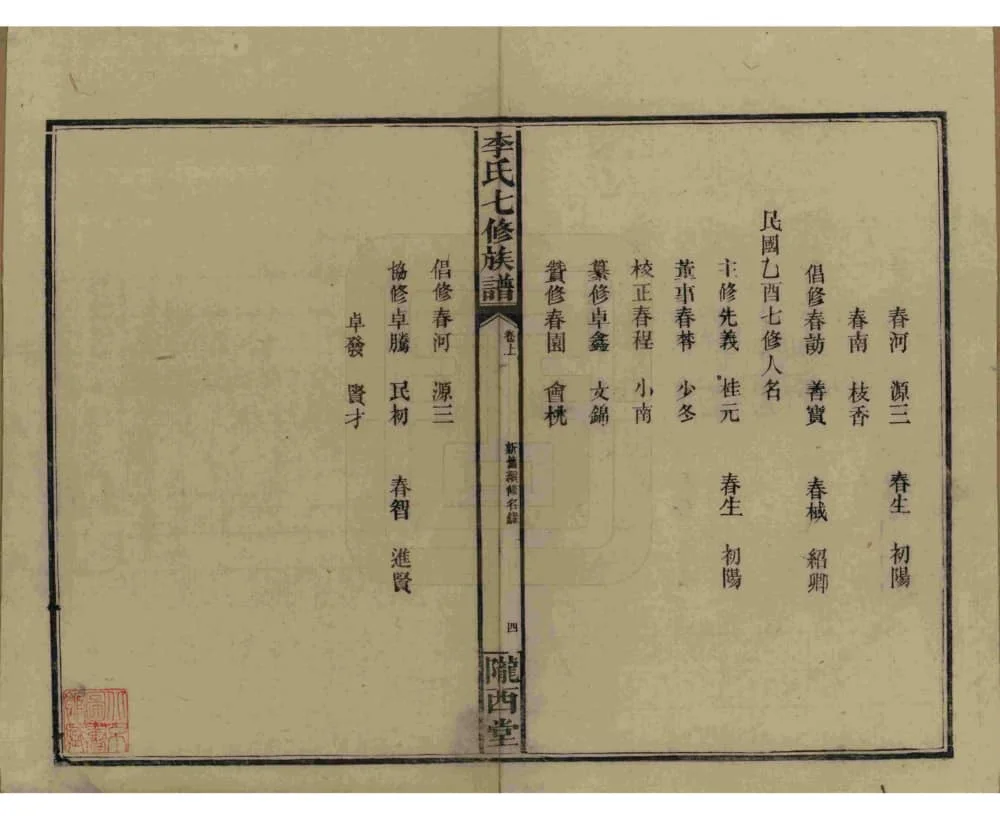 春河 源三 春生 初陽
春南 枝香
倡修春訪 善寶 春械 紹卿
民國乙酉七修人名
主修先義 桂元 春生 初陽
董事春蓉 少冬
校正春程 小南
纂修卓鑫 文錦
贊修春園 會桃
李氏七修族譜
卷上
新舊領修名錄
四
隴西堂
倡修春河 源三
協修卓騰 民初 春智 進賢
卓發 賢才